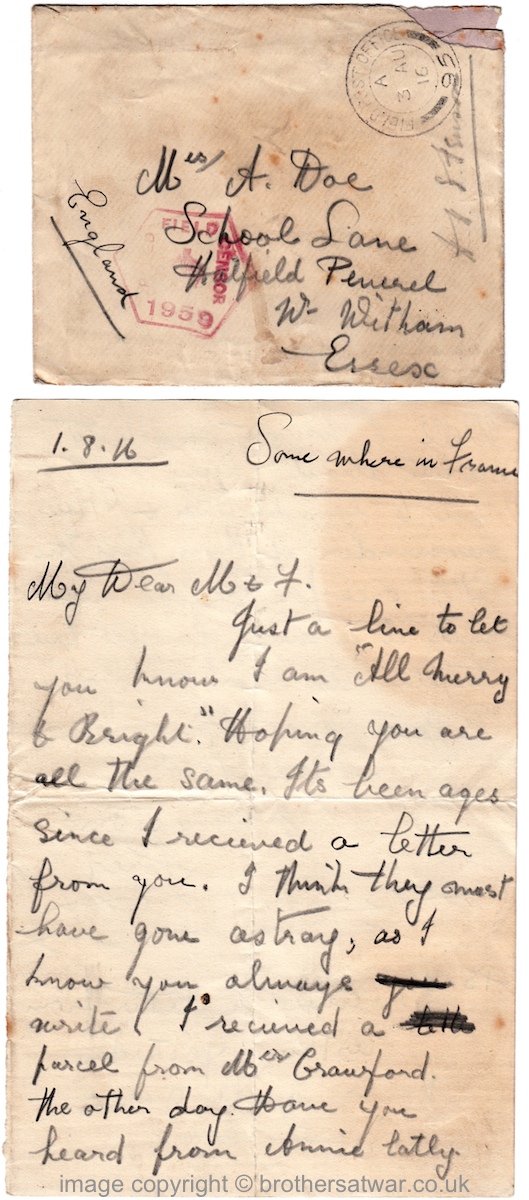 FIELD POST OFFICE
A
3 AU
16
95
Mrs/ A. Doe
School Lane
Hatfield Peverel
Nr Witham
Essex
England
FIELD
CENSOR
1959
1.8.16
Some where in France
My Dear M & F.
Just a line to let
you know I am "All Merry
& Bright." Hoping you are
all the same. Its been ages
since I recieved a letter
from you. I think they must
have gone astray, as I
know you always
write. I recieved a
parcel from Mrs Crawford.
the other day. Have you
heard from Annie latly.
image copyright © brothersatwar.co.uk